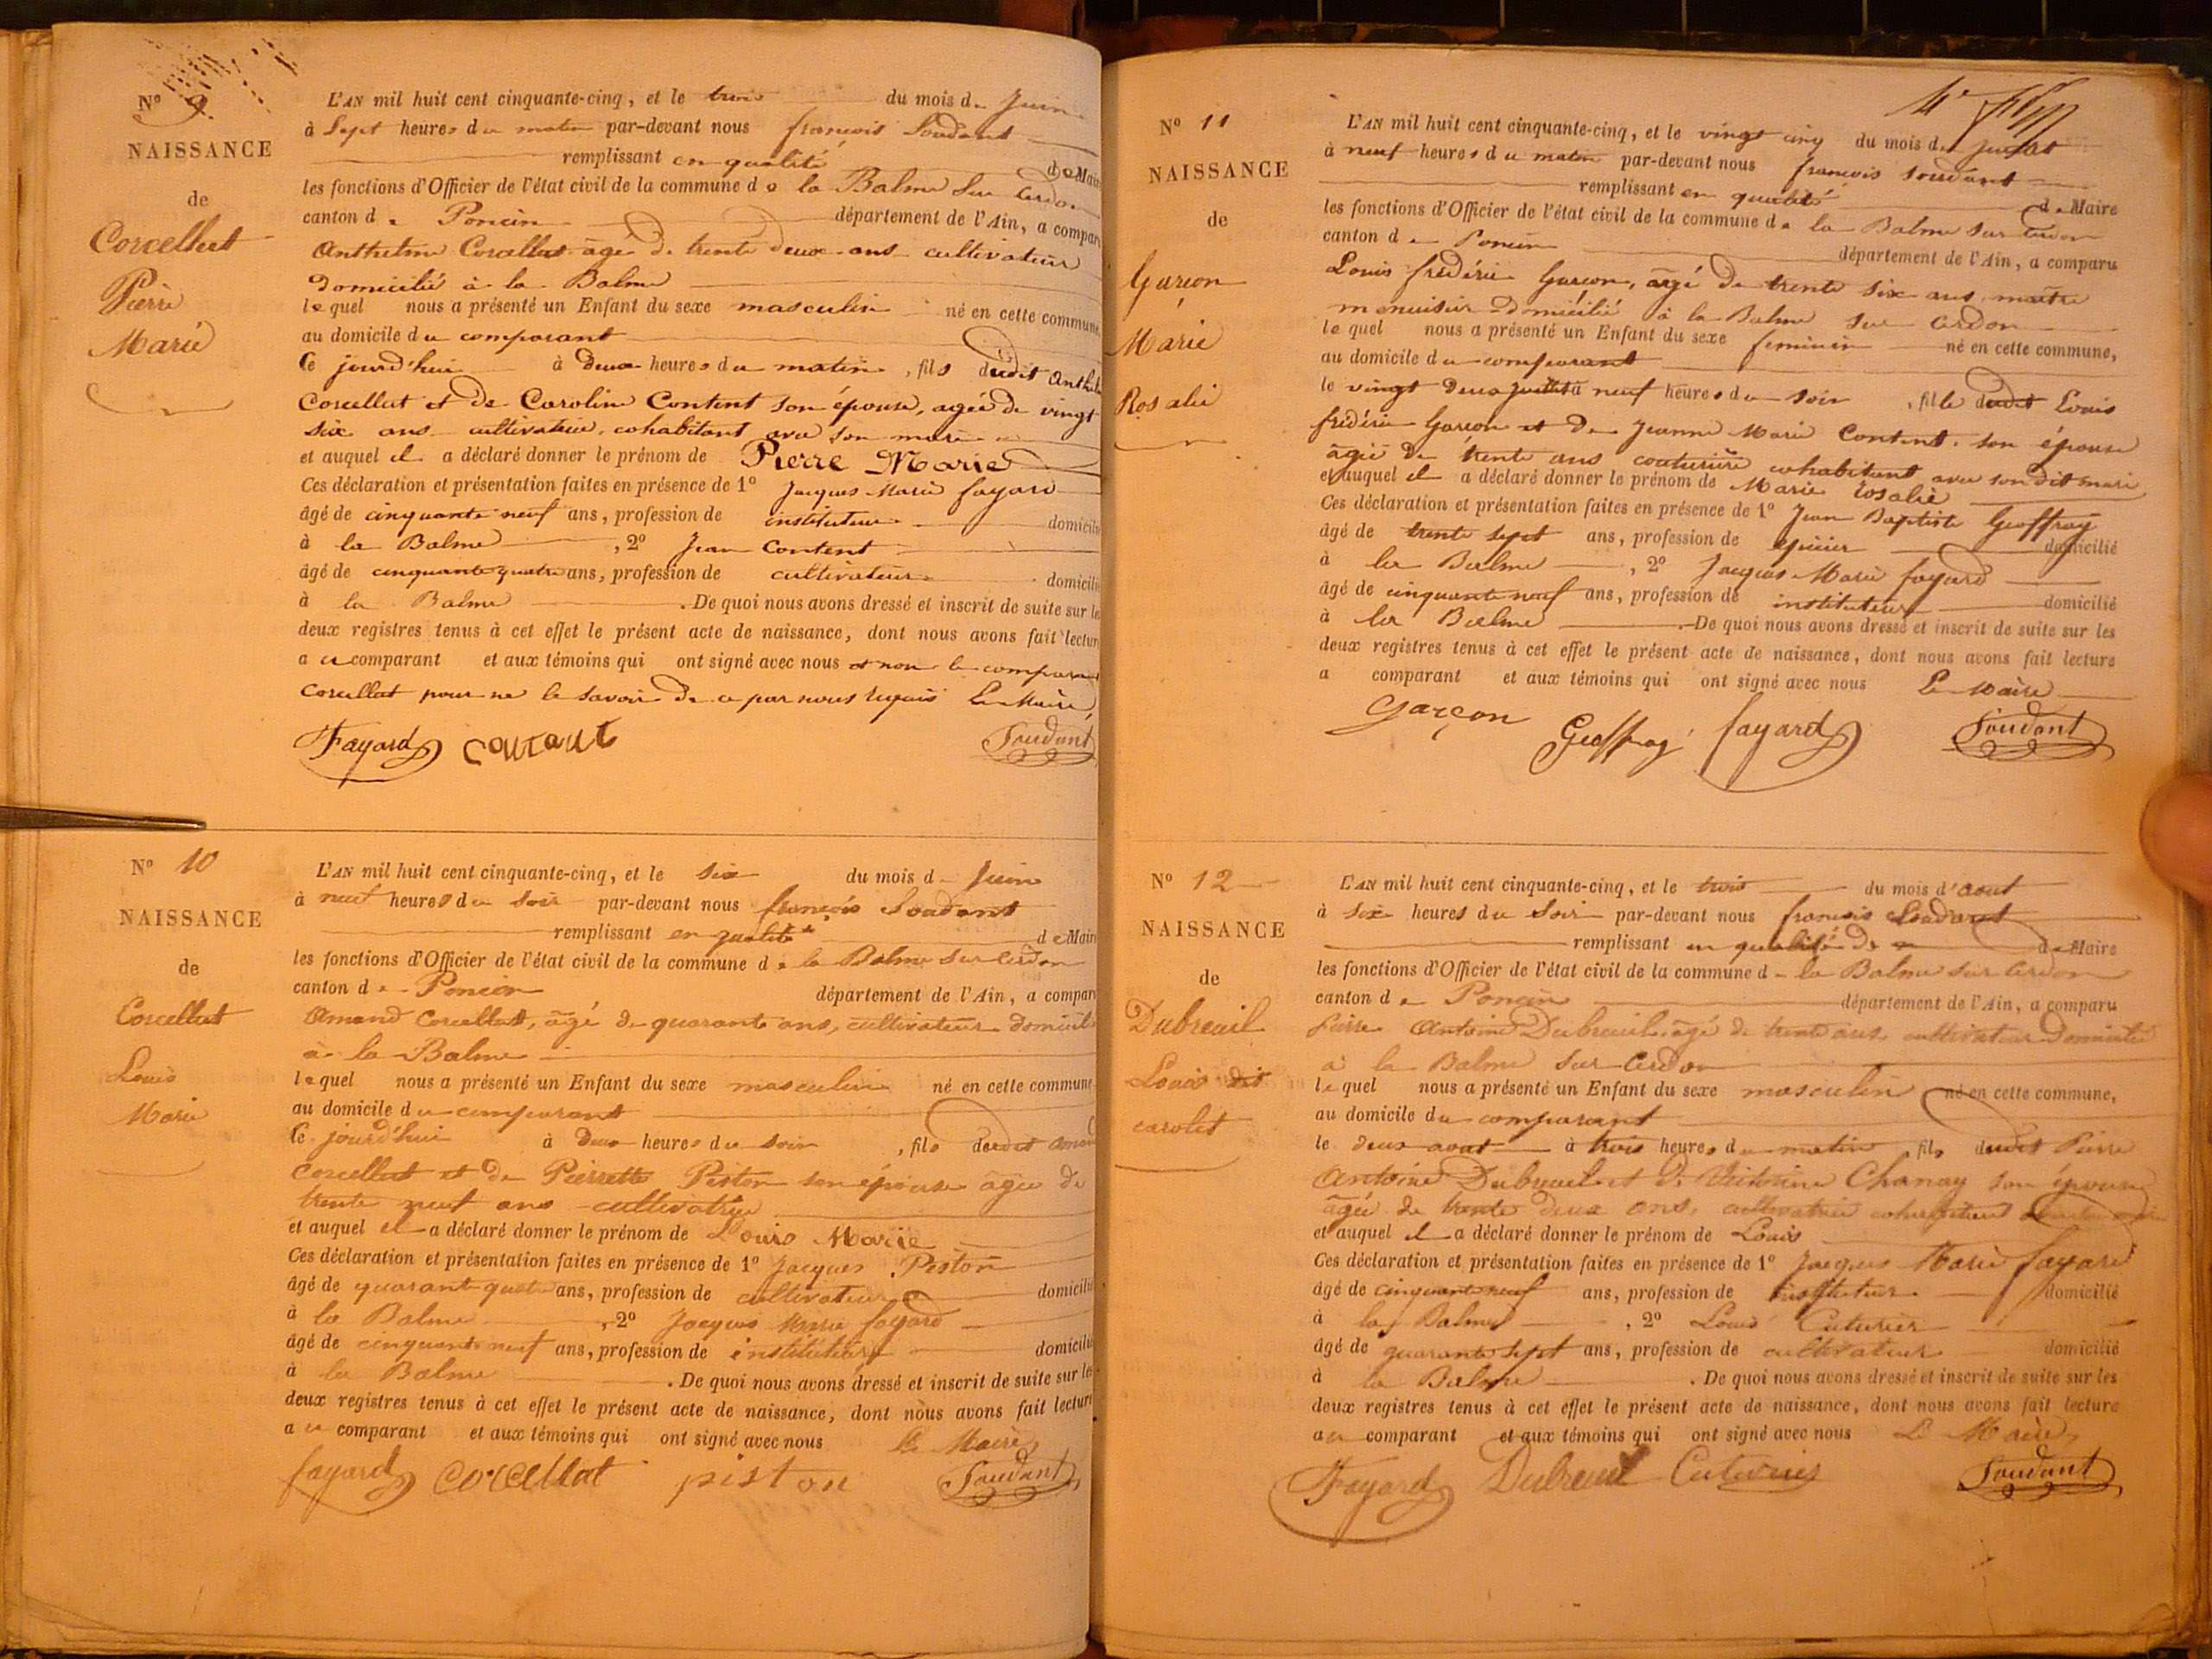 N° 9.
NAISSANCE
de
Corcellut
Pierre
Marie
L'AN mil huit cent cinquante-cinq, et le trois du mois de Juin
à Sept heures du matin par-devant nous françois Soudant
remplissant en qualité de Maire
les fonctions d'Officier de l'état civil de la commune de la Balme Sur Cerdon
canton de Poncin département de l'Ain, a comparu
Anthelme Corcellut âgé de trente deux ans cultivateur
domicilié à la Balme
lequel nous a présenté un Enfant du sexe masculin né en cette commune
au domicile du comparant
Ce jourd'hui à deux heures du matin, fils dudit Anthel
Corcellut et de Caroline Content son épouse, agée de vingt
six ans cultivatrice, cohabitant avec son mari
et auquel il a déclaré donner le prénom de Pierre Marie
Ces déclaration et présentation faites en présence de 1° Jacques Marie fayard
âgé de cinquante neuf ans, profession de instituteur domicilié
à la Balme, 2° Jean Content
âgé de cinquante quatre ans, profession de cultivateur domicilié
à la Balme. De quoi nous avons dressé et inscrit de suite sur les
deux registres tenus à cet effet le présent acte de naissance, dont nous avons fait lecture
a ce comparant et aux témoins qui ont signé avec nous et non le comparant
Corcellut pour ne le savoir de ce par nous requis Le Maire,
Fayard Contant Soudant
N° 10
NAISSANCE
de
Corcellut
Louis
Marie
L'AN mil huit cent cinquante-cinq, et le six du mois de Juin
à neuf heures du soir par-devant nous françois Soudant
remplissant en qualité de Maire
les fonctions d'Officier de l'état civil de la commune de la Balme sur Cerdon
canton de Poncin département de l'Ain, a comparu
Amand Corcellut, âgé de quarante ans, cultivateur domicilié
à la Balme
lequel nous a présenté un Enfant du sexe masculin né en cette commune
au domicile du comparant
Ce jourd'hui à deux heures du soir, fils dudit Amand
Corcellut et de Pierrette Piston son épouse âgée de
trente neuf ans cultivatrice
et auquel il a déclaré donner le prénom de Louis Marie
Ces déclaration et présentation faites en présence de 1° Jacques Piston
âgé de quarant quatre ans, profession de cultivateur domicilié
à la Balme, 2° Jacques Marie fayard
âgé de cinquante neuf ans, profession de instituteur domicilié
à la Balme. De quoi nous avons dressé et inscrit de suite sur les
deux registres tenus à cet effet le présent acte de naissance, dont nous avons fait lecture
a ce comparant et aux témoins qui ont signé avec nous Le Maire,
fayard Corcellut piston Soudant
N° 11
NAISSANCE
de
Garçon
Marie
Rosalie
L'AN mil huit cent cinquante-cinq, et le vingt cinq du mois de Juillet
à neuf heures du matin par-devant nous françois Soudant
remplissant en qualité de Maire
les fonctions d'Officier de l'état civil de la commune de la Balme sur Cerdon
canton de Poncin département de l'Ain, a comparu
Louis frédéric Garçon, âgé de trente six ans, maître
menuisier domicilié à la Balme sur Cerdon
lequel nous a présenté un Enfant du sexe feminin né en cette commune,
au domicile du comparant
le vingt deux Juillet à neuf heures du soir, fille dudit Louis
frédéric Garçon et de Jeanne Marie Content son épouse
âgée de trente ans couturière cohabitant avec son dit mari
et auquel il a déclaré donner le prénom de Marie Rosalie
Ces déclaration et présentation faites en présence de 1° Jean Baptiste Geoffray
âgé de trente sept ans, profession de épicier domicilié
à la Balme, 2° Jacques Marie fayard
âgé de cinquante neuf ans, profession de instituteur domicilié
à la Balme. De quoi nous avons dressé et inscrit de suite sur les
deux registres tenus à cet effet le présent acte de naissance, dont nous avons fait lecture
a comparant et aux témoins qui ont signé avec nous Le Maire
Garçon Geoffray fayard Soudant
N° 12
NAISSANCE
de
Dubreuil
Louis dit
carolet
L'AN mil huit cent cinquante-cinq, et le trois du mois d'aout
à six heures du Soir par-devant nous francois Soudant
remplissant en qualité de de Maire
les fonctions d'Officier de l'état civil de la commune de la Balme sur Cerdon
canton de Poncin département de l'Ain, a comparu
Pierre Antoine Dubreuil âgé de trente ans cultivateur domicilié
à la Balme sur Cerdon
lequel nous a présenté un Enfant du sexe masculin né en cette commune,
au domicile du comparant
le deux aout à trois heures du matin, fils dudit Pierre
Antoine Dubreuil et de Victorine Chanay son épouse
âgée de trente deux ans, cultivatrice cohabitant
et auquel il a déclaré donner le prénom de Louis
Ces déclaration et présentation faites en présence de 1° Jacques Marie fayard
âgé de cinquante neuf ans, profession de instituteur domicilié
à la Balme, 2° Louis Cuturier
âgé de quarante sept ans, profession de cultivateur domicilié
à la Balme. De quoi nous avons dressé et inscrit de suite sur les
deux registres tenus à cet effet le présent acte de naissance, dont nous avons fait lecture
au comparant et aux témoins qui ont signé avec nous Le Maire,
Fayard Dubreuil Cuturier Soudant